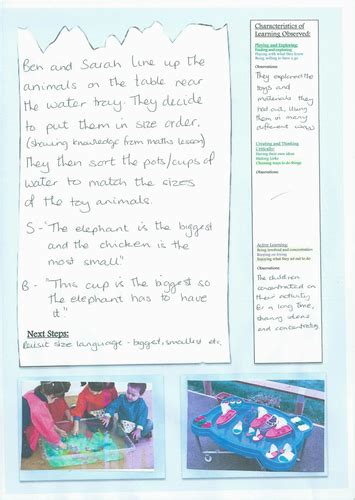 Ben and Sarah line up the
animals on the table near
the water tray. They decide
to put them in size order.
(showing knowledge from maths lesson)
They then sort the pots/cups of
water to match the sizes
of the toy animals.
S - "The elephant is the biggest
and the chicken is the
most small."
B - "This cup is the biggest so
the elephant has to have
it"
Next Steps:
Revisit size language - biggest, smallest etc.
Characteristics of
Learning Observed:
Playing and Exploring:
Finding and exploring
Playing with what they know
Being willing to have a go
Observations:
They explored the
toys and
materials they
had out, using
them in many
different ways
Creating and Thinking
Critically:
Having their own ideas
Making links
Choosing ways to do things
Observations:
Active Learning:
Being involved and concentration
Keeping on trying
Enjoying what they set out to do
Observations:
The children
concentrated on
their activity
for a long time,
sharing ideas
and concentrating